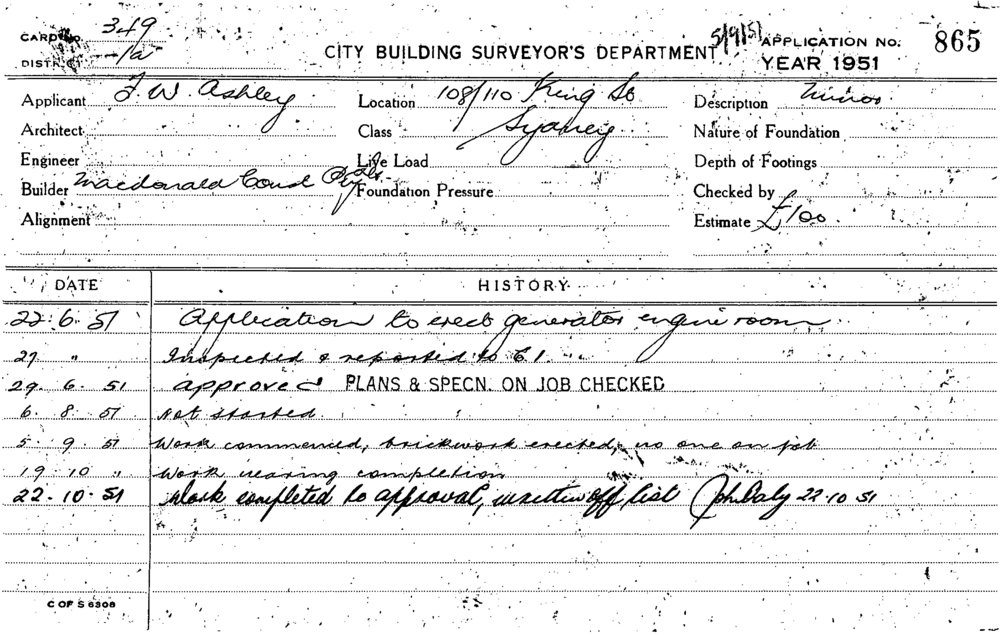 CARD No. 349
DISTRICT 1/a
CITY BUILDING SURVEYOR'S DEPARTMENT
5/9/51
APPLICATION No. 865
YEAR 1951
Applicant F. W. Ashley
Location 108/110 King St
Sydney
Description Minor
Architect
Class
Nature of Foundation
Engineer
Live Load
Depth of Footings
Builder Macdonald Const Pty
Foundation Pressure
Checked by
Alignment
Estimate £100
DATE HISTORY
22. 6. 51 Application to erect generator engine room
27 " Inspected & reported to C1
29. 6. 51 approved PLANS & SPECN. ON JOB CHECKED
6. 8. 51 Not started
5. 9. 51 Work commenced, brickwork erected, no one on job
19. 10 " Work nearing completion
22. 10. 51 Work completed to approval, written off list John Daly 22.10.51
C OF S 6308